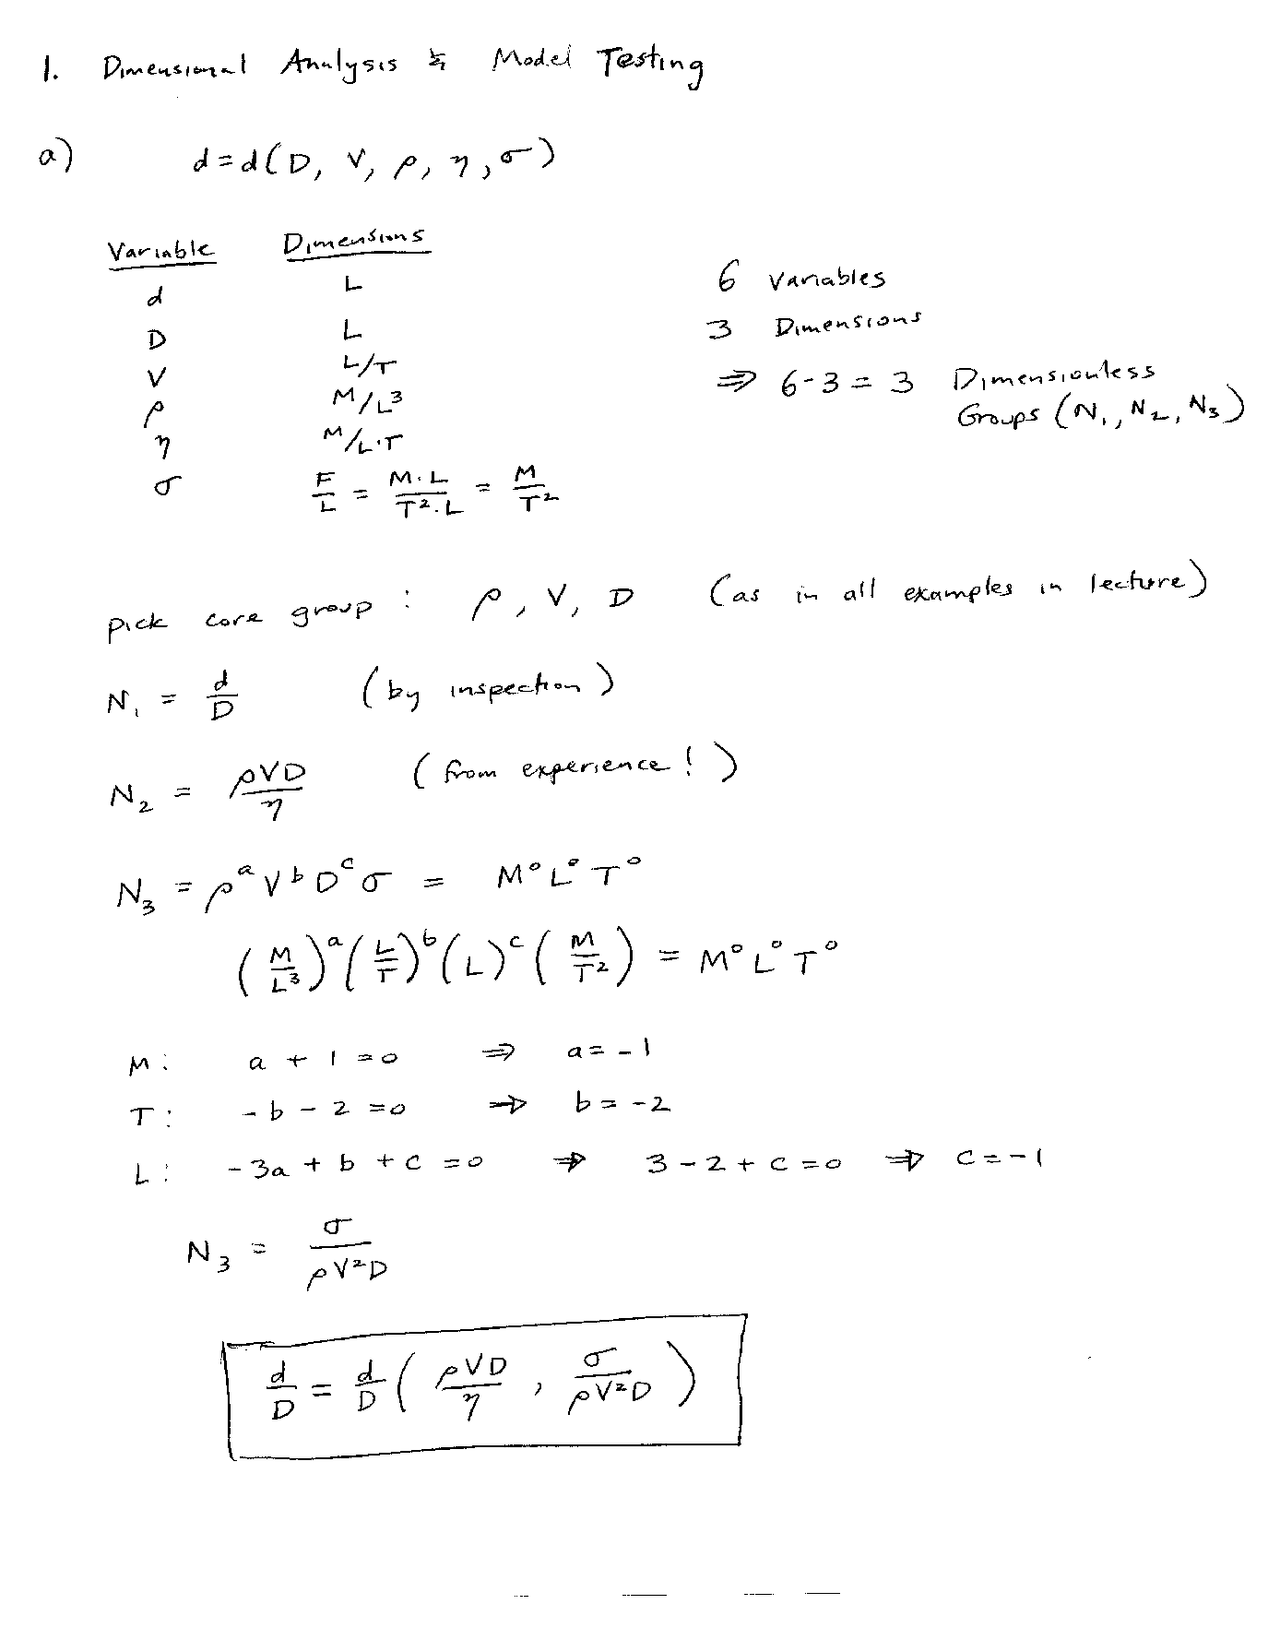 1. Dimensional Analysis & Model Testing
a) d = d(D, V, ρ, η, σ)
Variable Dimensions
d L
D L
V L/T
ρ M/L³
η M/L·T
σ F/L = M·L/T²·L = M/T²
6 Variables
3 Dimensions
⇒ 6-3 = 3 Dimensionless
Groups (N₁, N₂, N₃)
pick core group : ρ, V, D (as in all examples in lecture)
N₁ = d/D (by inspection)
N₂ = ρVD/η (from experience!)
N₃ = ρᵃ Vᵇ Dᶜ σ = M⁰ L⁰ T⁰
(M/L³)ᵃ (L/T)ᵇ (L)ᶜ (M/T²) = M⁰ L⁰ T⁰
M: a + 1 = 0 ⇒ a = -1
T: -b - 2 = 0 ⇒ b = -2
L: -3a + b + c = 0 ⇒ 3 - 2 + c = 0 ⇒ c = -1
N₃ = σ/ρV²D
d/D = d/D ( ρVD/η , σ/ρV²D )